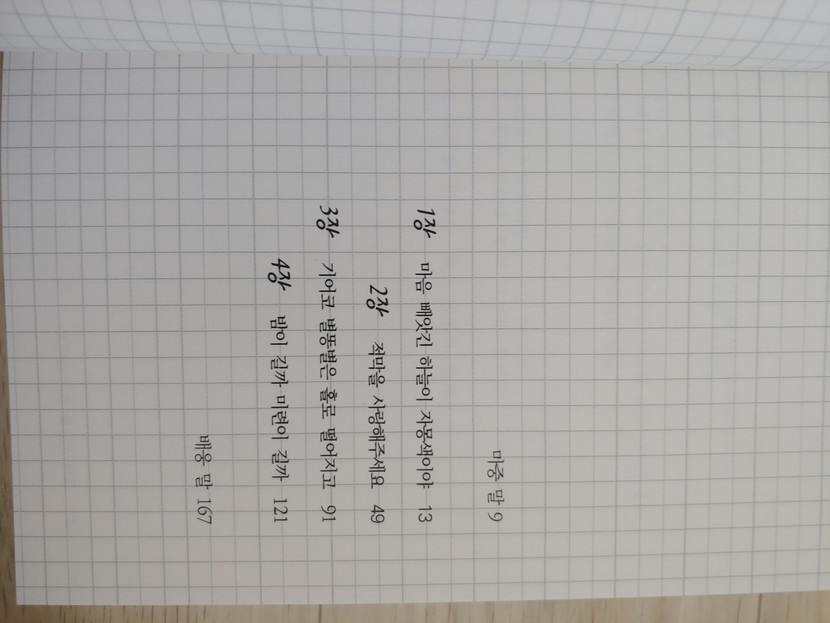 마중 말 9
1장 마음 빼앗긴 하늘이 자몽색이야 13
2장 적막을 사랑해주세요 49
3장 기어코 별똥별은 홀로 떨어지고 91
4장 밤이 길까 미련이 길까 121
배웅 말 167